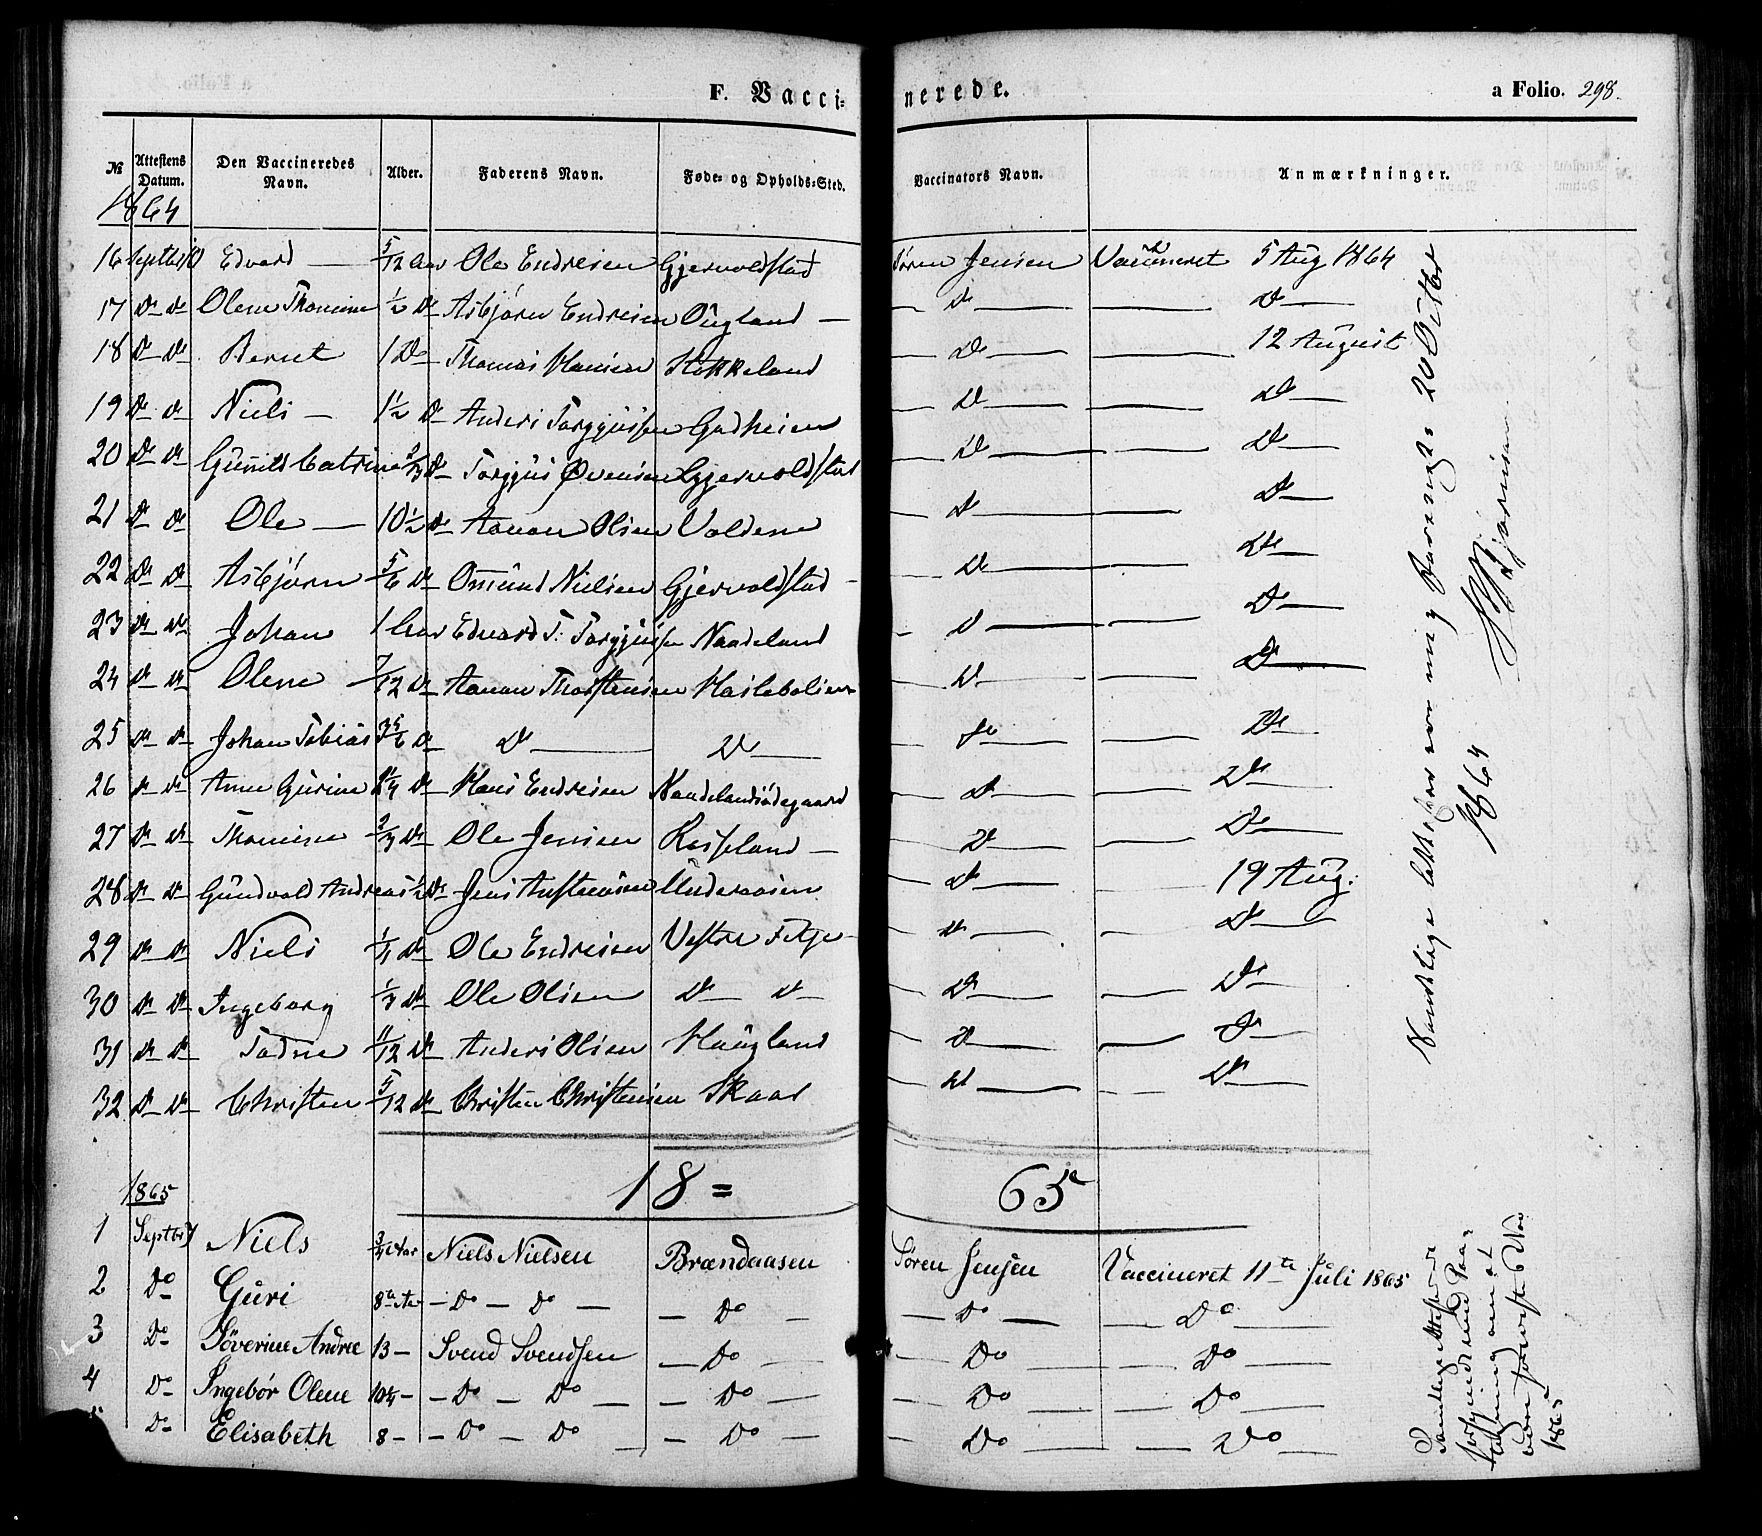 F. Vaccinerede. a Folio. 298.
№ Attestens Datum. Den Vaccineredes Navn. Alder. Faderens Navn. Føde- og Opholds-Sted. Vaccinators Navn. Anmærkninger.
1864
16 Septbr Edvard — 5/12 Aar Ole Endresen Gjervoldstad Søren Jensen Vaccineret 5 Aug 1864
17 Do Do Olene Thomine 1/2 Do Asbjørn Endresen Øugland — Do — Do —
18 Do Do Bernt 1 Do Thomas Hansen Stokkeland — Do — 12 August
19 Do Do Niels — 1 1/2 Do Anders Torgjussen Gudheien — Do — Do —
20 Do Do Gunild Catrine 2/3 Do Torgjus Øvensen Gjervoldstad — Do — Do —
21 Do Do Ole — 10 1/2 Do Aanon Olsen Voldene — Do — Do —
22 Do Do Asbjørn 5/6 Do Omund Nielsen Gjervoldstad — Do — Do —
23 Do Do Johan 1 Aar Edvard T. Torgjussen Naadeland — Do — Do —
24 Do Do Olene 7/12 Do Aanon Thorstensen — Do — Do —
25 Do Do Johan Tobias 3 5/6 Do Do — Do — — Do — Do —
26 Do Do Anne Gurine Do Hans Endresen Naadelandsødegaard — Do — Do —
27 Do Do Thomine 2/3 Do Ole Jensen Rosseland — Do — Do —
28 Do Do Gundvold Andreas 1/2 Do Jens Austensen Underaasen — Do — 19 Aug.
29 Do Do Niels Do Ole Endresen Vestre — Do — Do —
30 Do Do Ingeborg 1/3 Do Ole Olsen Do — Do — — Do — Do —
31 Do Do Tadne 11/12 Do Anders Olsen Haugland — Do — Do —
32 Do Do Christen 5/12 Do Christen Christensen Skaar — Do — Do —
Samtlige Attester mig 20 Octbr
1864 Bjørnson
18 = 65
1865
1 Septbr Niels 3/4 Aar Niels Nielsen Brændaasen Søren Jensen Vaccineret 11te Juli 1865
2 Do Guri 8 Aar — Do — Do — — Do — — Do — — Do —
3 Do Søverine Andree 13 — Svend Svendsen — Do — — Do — — Do —
4 Do Ingebør Olene 10 3/4 — — Do — Do — — Do — — Do — — Do —
5 Do Elisabeth 8 — — Do — Do — — Do — — Do — — Do —
Samtlige Attester
1865